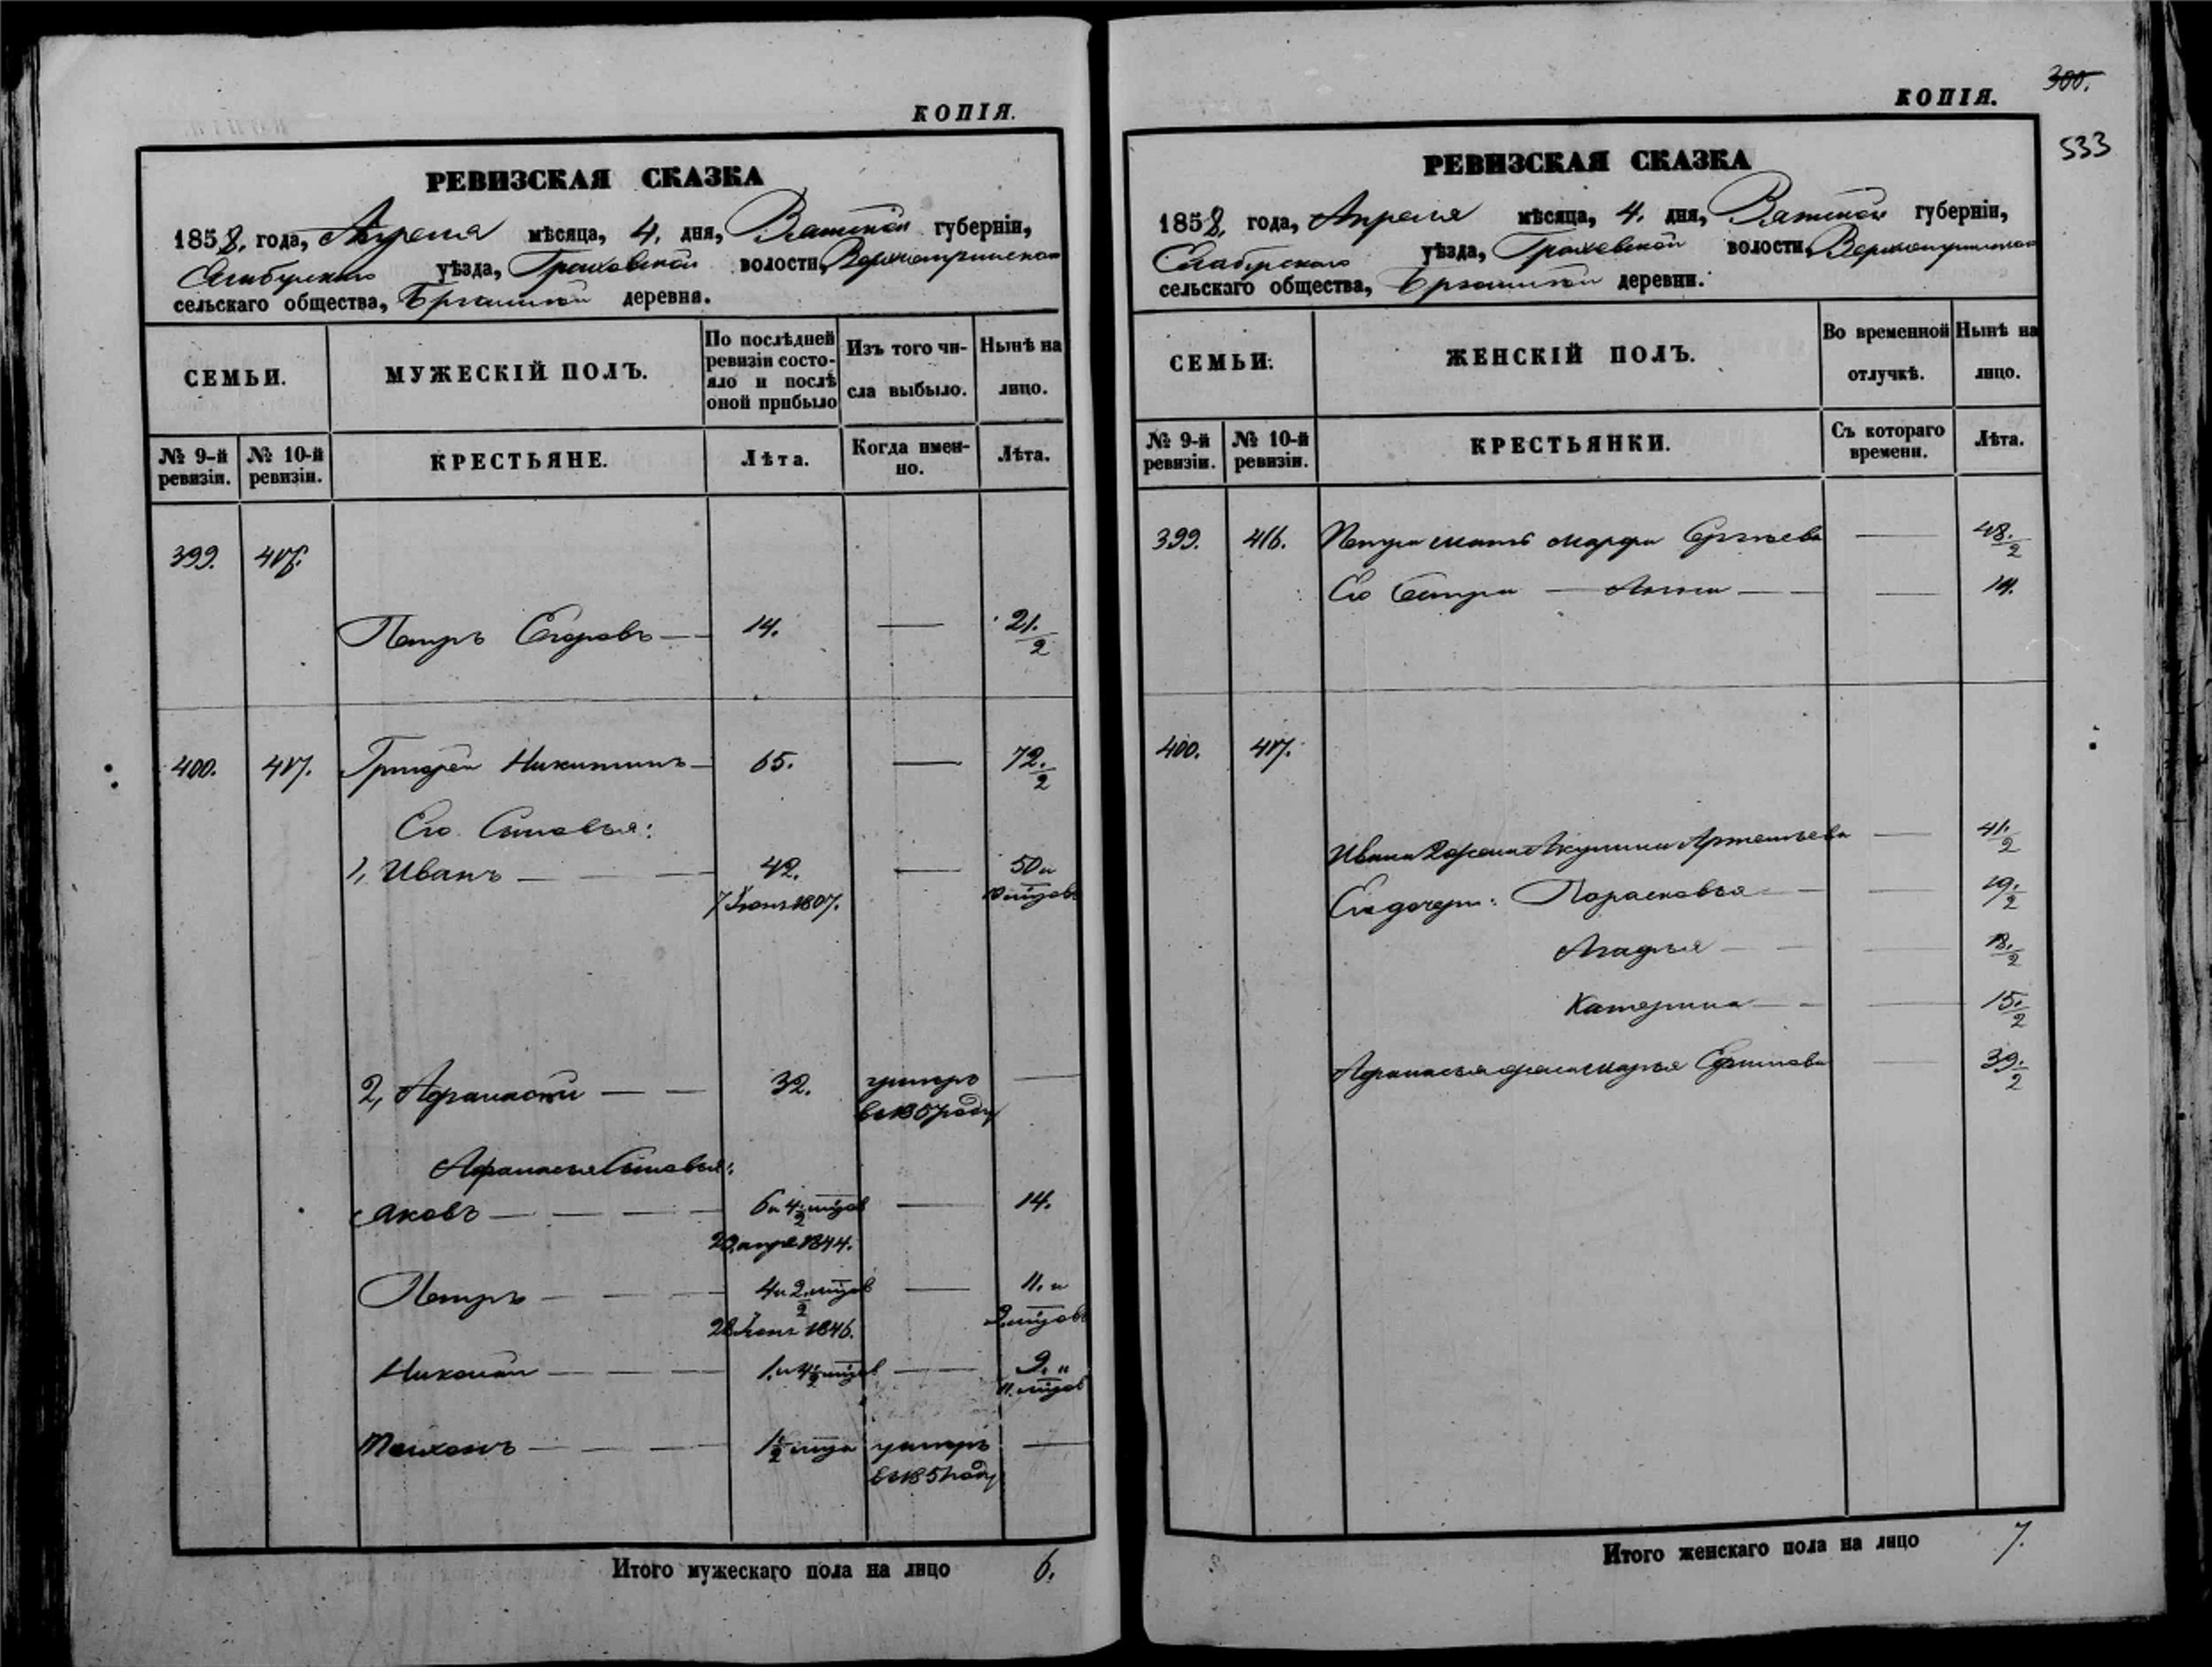 КОПІЯ.
РЕВИЗСКАЯ СКАЗКА
1858. года, Апреля мѣсяца, 4. дня, Вятской губерніи,
Елабужскаго уѣзда, Граховской волости,
сельскаго общества, деревня.
СЕМЬИ.
МУЖЕСКІЙ ПОЛЪ.
По послѣдней ревизіи состояло и послѣ оной прибыло
Изъ того числа выбыло.
Нынѣ на лицо.
№ 9-й ревизіи.
№ 10-й ревизіи.
КРЕСТЬЯНЕ.
Лѣта.
Когда именно.
Лѣта.
399. 416.
Петръ Егоровъ — 14. — 21. 1/2
400. 417. Григорей Никитинъ — 65. — 72. 1/2
Его Сыновья:
1, Иванъ — 42. — 50 и
7 1807. мѣсцовъ
2, Афанасій — 32. умеръ —
въ 1857 году
Афанасья Сыновья:
Яковъ — 6 и 4 1/2 мѣсцов — 14.
1844.
Петръ — 4 и 2 1/2 мѣсцов — 11. и
28 1846. 9 мѣсцовъ
Николай — 1. и 4 1/2 мѣсцов — 9. "
11. мѣсцов
Тихонъ — 1 1/2 мѣсца умеръ —
въ 1851 году
Итого мужескаго пола на лицо 6.
КОПІЯ.
300.
533
РЕВИЗСКАЯ СКАЗКА
1858. года, Апреля мѣсяца, 4. дня, Вятской губерніи,
Елабужскаго уѣзда, Граховской волости,
сельскаго общества, деревни.
СЕМЬИ:
ЖЕНСКІЙ ПОЛЪ.
Во временной отлучкѣ.
Нынѣ на лицо.
№ 9-й ревизіи.
№ 10-й ревизіи.
КРЕСТЬЯНКИ.
Съ котораго времени.
Лѣта.
399. 416. Петра мать Марфа Сергѣева — 48. 1/2
Его Сестра — Анна — —
400. 417.
Ивана 2 жена Акулина Артемьева — 41. 1/2
Его дочери: Парасковья — — 19. 1/2
Агафья — — 1/2
Катерина — — 15. 1/2
Афанасья жена Марья Ефимова — 39. 1/2
Итого женскаго пола на лицо 7.